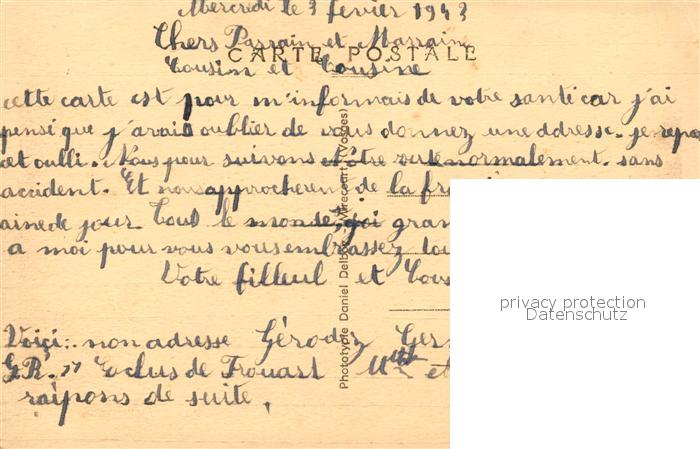 Mercredi le 3 fevier 1943
Chers Parrain et Marraine
CARTE POSTALE
Cousim et Cousine
cette carte est pour m'informais de votre santé car j'ai
pensi que j'avais oublier de vous donnez une ddresse. je repar
cet oulli. Nous pour suivons notre route normalement. sans
accident. Et nous approcherem de la fra
aine de jour Tous le monde, qoi gran
a moi pour vous vous embrassez tou
Votre filleul et Cous
Voiçi: mon adresse Gérodez Ger
G.R. 77 Eclus de Frouart Mlle et
raipons de suite.
Phototypie Daniel Delboy - Mirecourt (Vosges)
privacy protection
Datenschutz